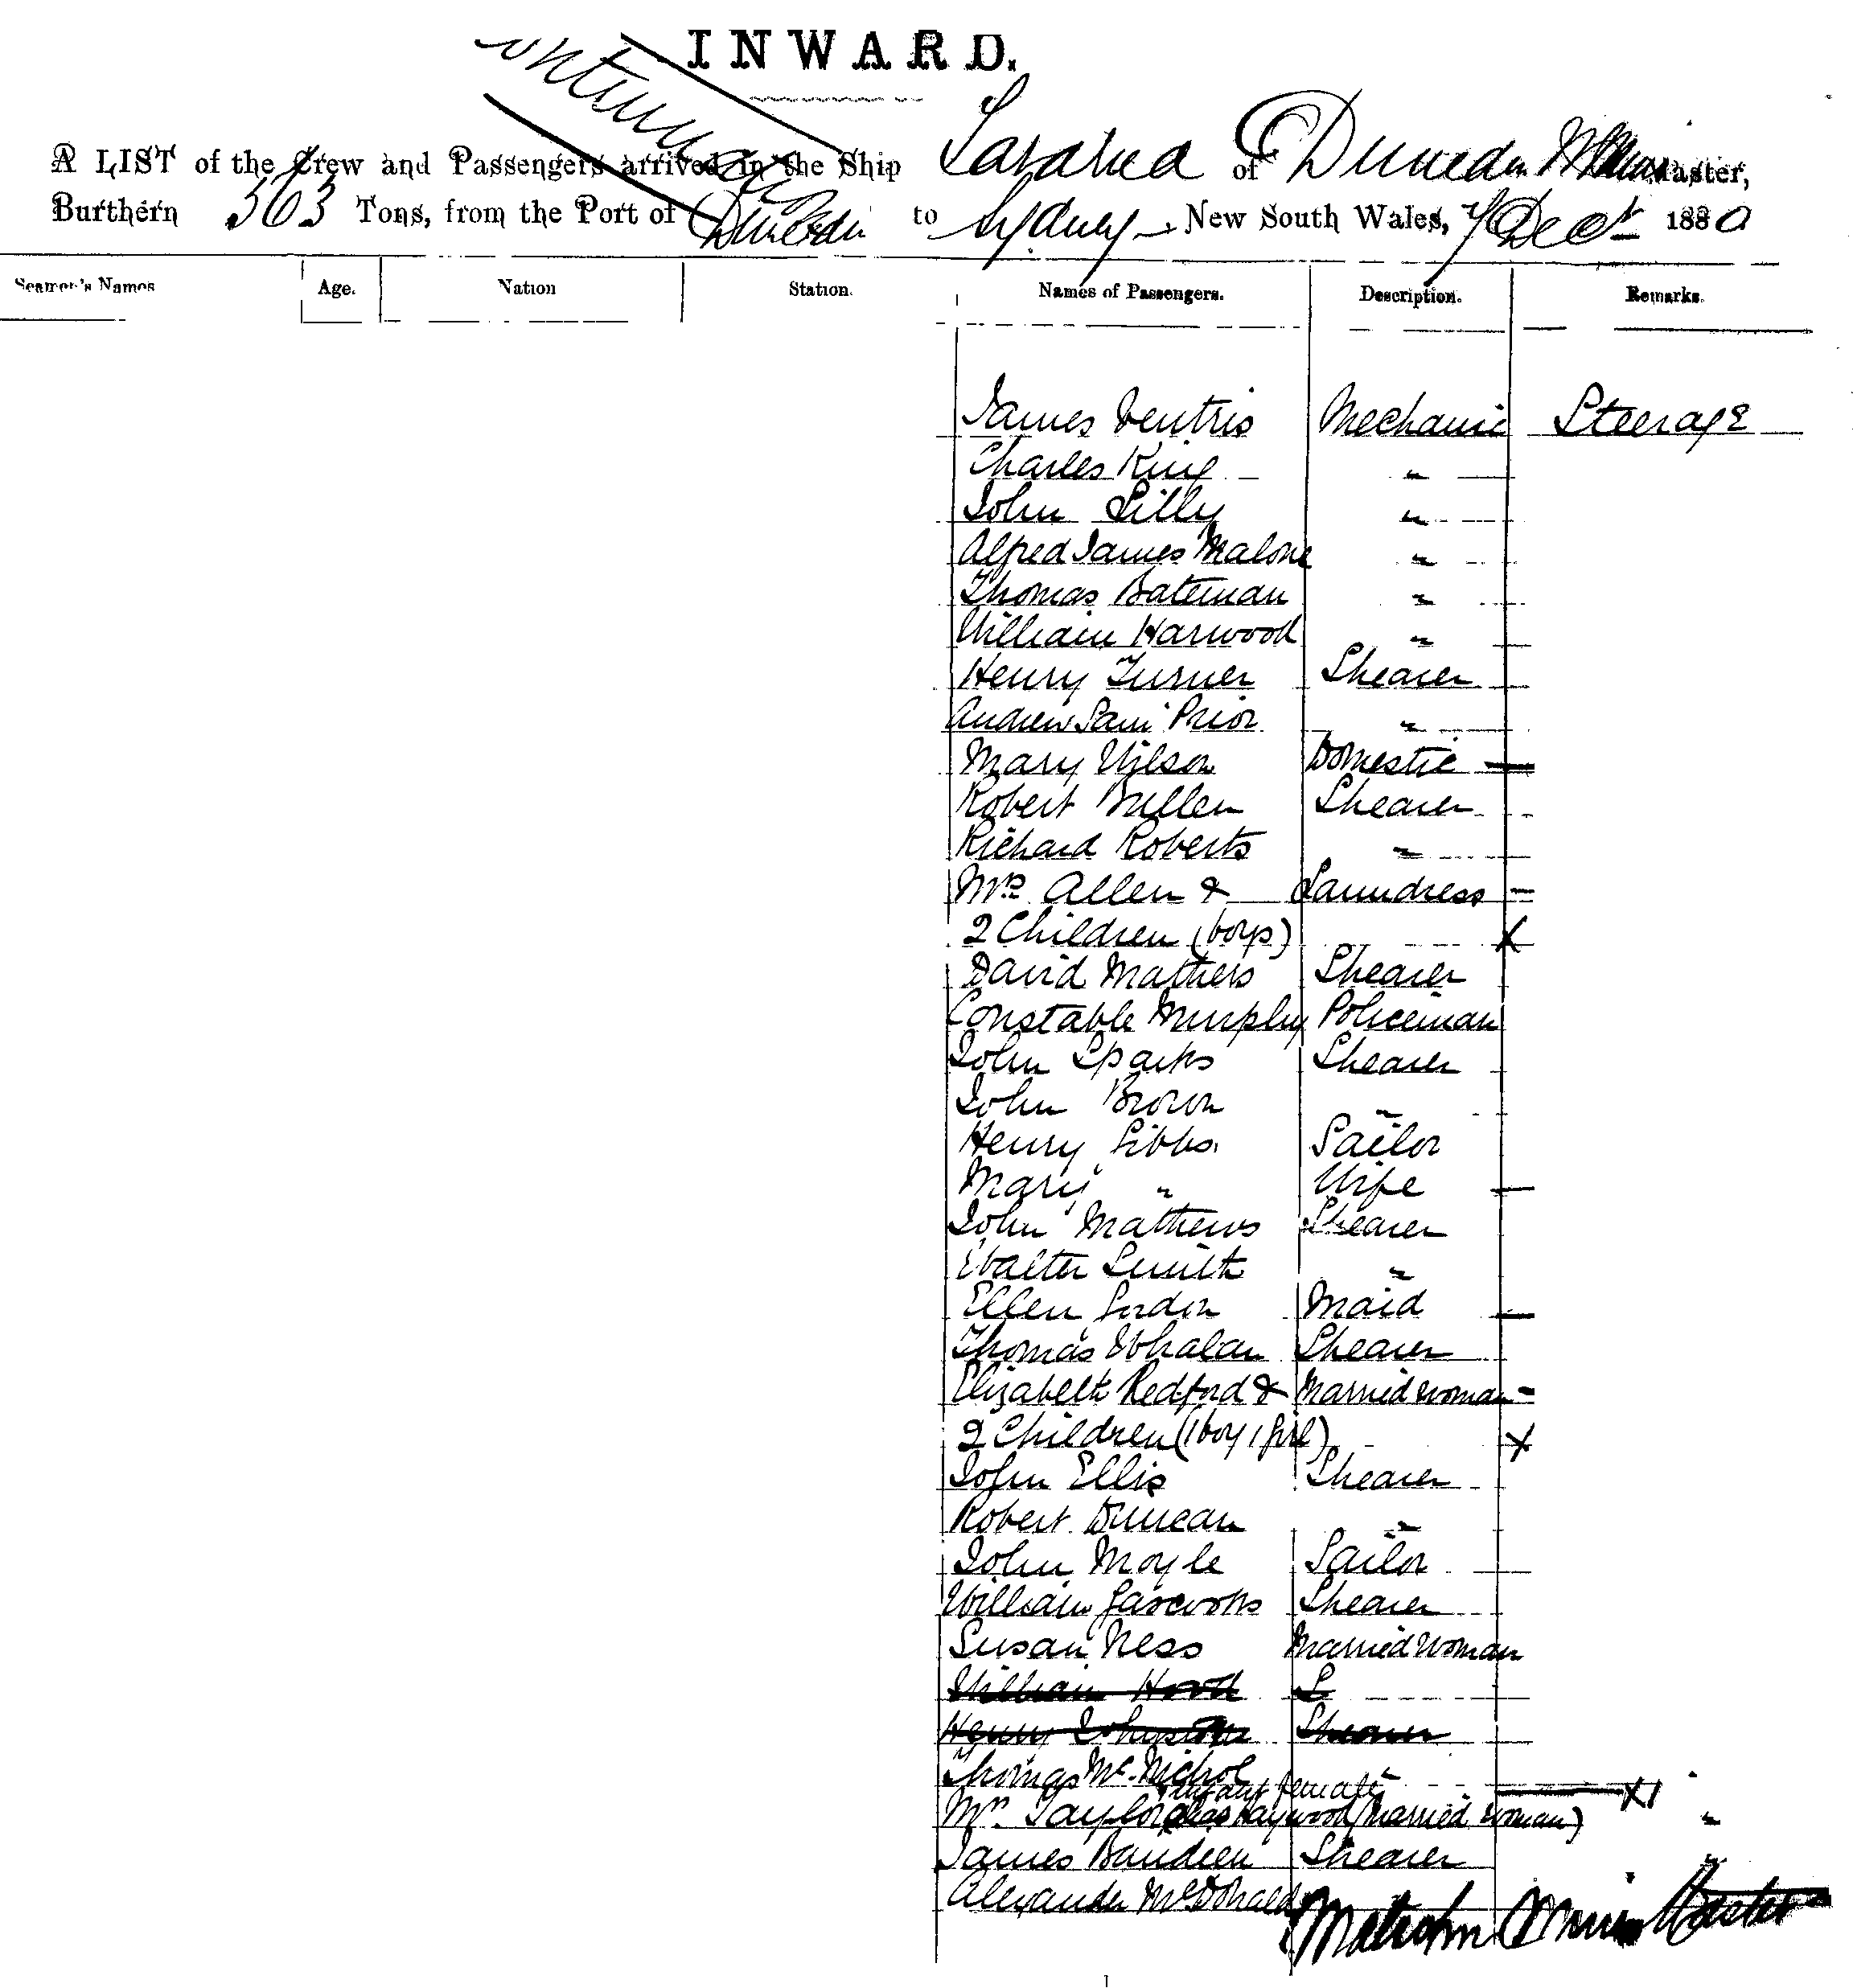 INWARD.
Continuation
A LIST of the Crew and Passengers arrived in the Ship Tararua of Dunedin Master,
Burthern 563 Tons, from the Port of Dunedin to Sydney New South Wales, 7 Decr 1880
Seamen's Names Age. Nation Station. Names of Passengers. Description. Remarks.
James Ventris Mechanic Steerage
Charles King "
John Lilly "
Alfred James Malone "
Thomas Bateman "
William Harwood "
Henry Turner Shearer
Andrew Saml Prior "
Mary Wilson Domestic
Robert Bullen Shearer
Richard Roberts "
Mrs Allen & Laundress
2 Children (boys) X
David Mathers Shearer
Constable Murphy Policeman
John Sparks Shearer
John Brown "
Henry Gibbs. Sailor
Mary " Wife
John Mathews Shearer
Walter Smith "
Ellen Gordon Maid
Thomas Whalan Shearer
Elizabeth Redford & Married woman
2 Children (1 boy 1 girl) X
John Ellis Shearer
Robert Duncan "
John Moyle Sailor
William Shearer
Susan Ness Married Woman
William Hood S
Henry Johnstone Shearer
Thomas McNichol "
infant female X1
Mrs Taylor alias Haywood (Married woman) "
James Shearer "
Alexander McDonald
Malcolm Master